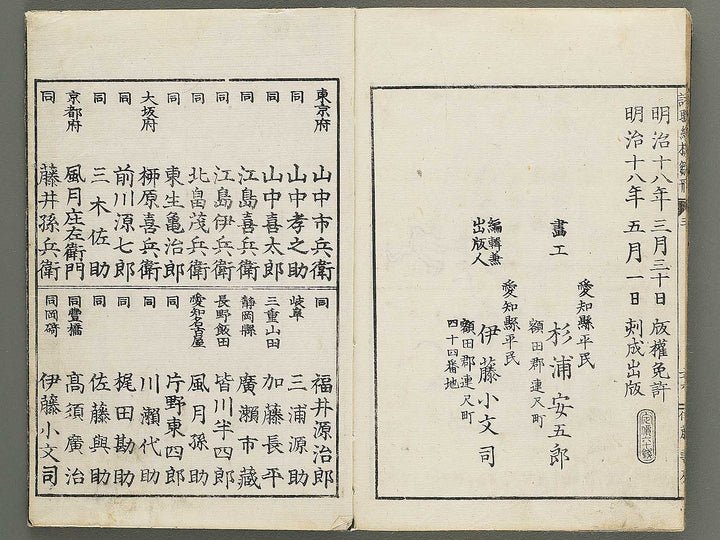 明治十八年三月三十日版權免許
明治十八年五月一日刻成出版
定價六十錢
畫工
愛知縣平民
杉浦安五郎
額田郡連尺町
編輯兼
出版人
愛知縣平民
伊藤小文司
額田郡連尺町
四十四番地
東京府 山中市兵衛
同 山中孝之助
同 山中喜太郎
同 江島喜兵衛
同 江島伊兵衛
同 北畠茂兵衛
同 東生亀治郎
大坂府 栁原喜兵衛
同 前川源七郎
同 三木佐助
京都府 風月庄左衛門
同 藤井孫兵衛
同 福井源治郎
岐阜 三浦源助
三重山田 加藤長平
静岡縣 廣瀬市藏
長野飯田 皆川半四郎
愛知名古屋 風月孫助
同 片野東四郎
同 川瀬代助
同 梶田勘助
同 佐藤與助
同豊橋 髙須廣治
同岡碕 伊藤小文司